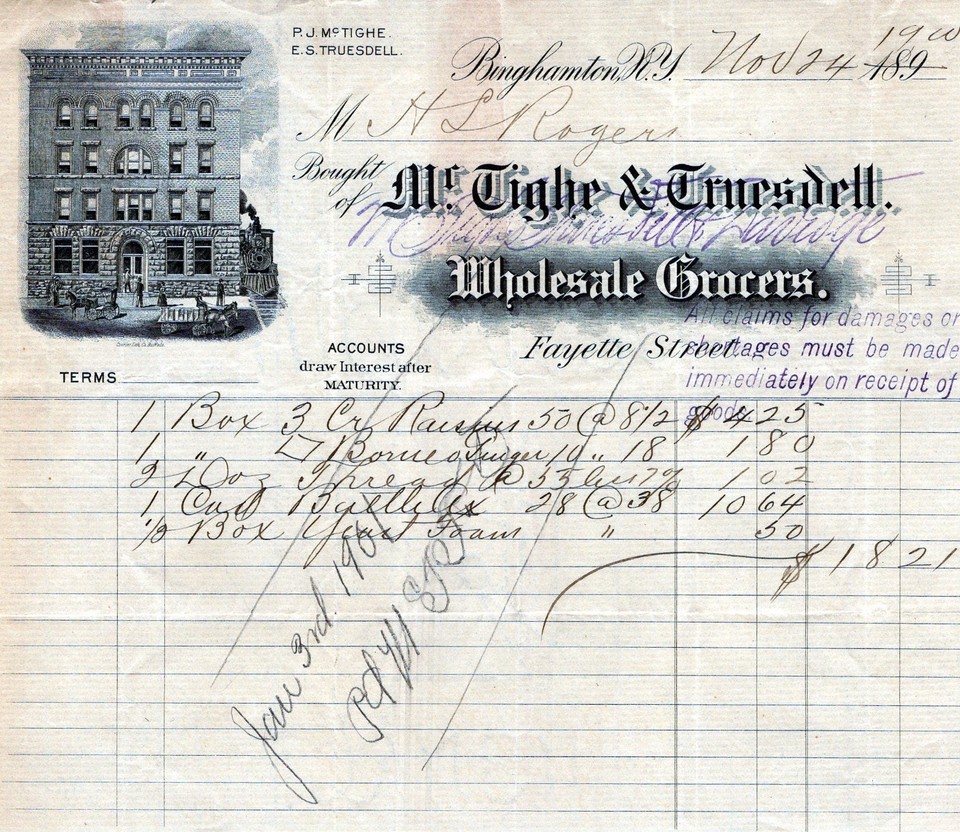 P.J. McTIGHE.
E.S. TRUESDELL.
Binghamton, N.Y. Nov 24 1900 189
M H L Rogers
Bought of Mc. Tighe & Truesdell.
Wholesale Grocers.
Fayette Street.
All claims for damages or
shortages must be made
immediately on receipt of
goods
ACCOUNTS
draw Interest after
MATURITY.
TERMS
1 Box 3 Cr Raisins 50 @ 8 1/2 $ 4 25
1 " Borneo Ginger 10 " 18 1 80
2 Doz Thread @ 55 1 02
1 Cad 28 @ 38 10 64
1/2 Box Yeast Foam " 50
$ 18 21
Jan 3rd. 1901
Pd